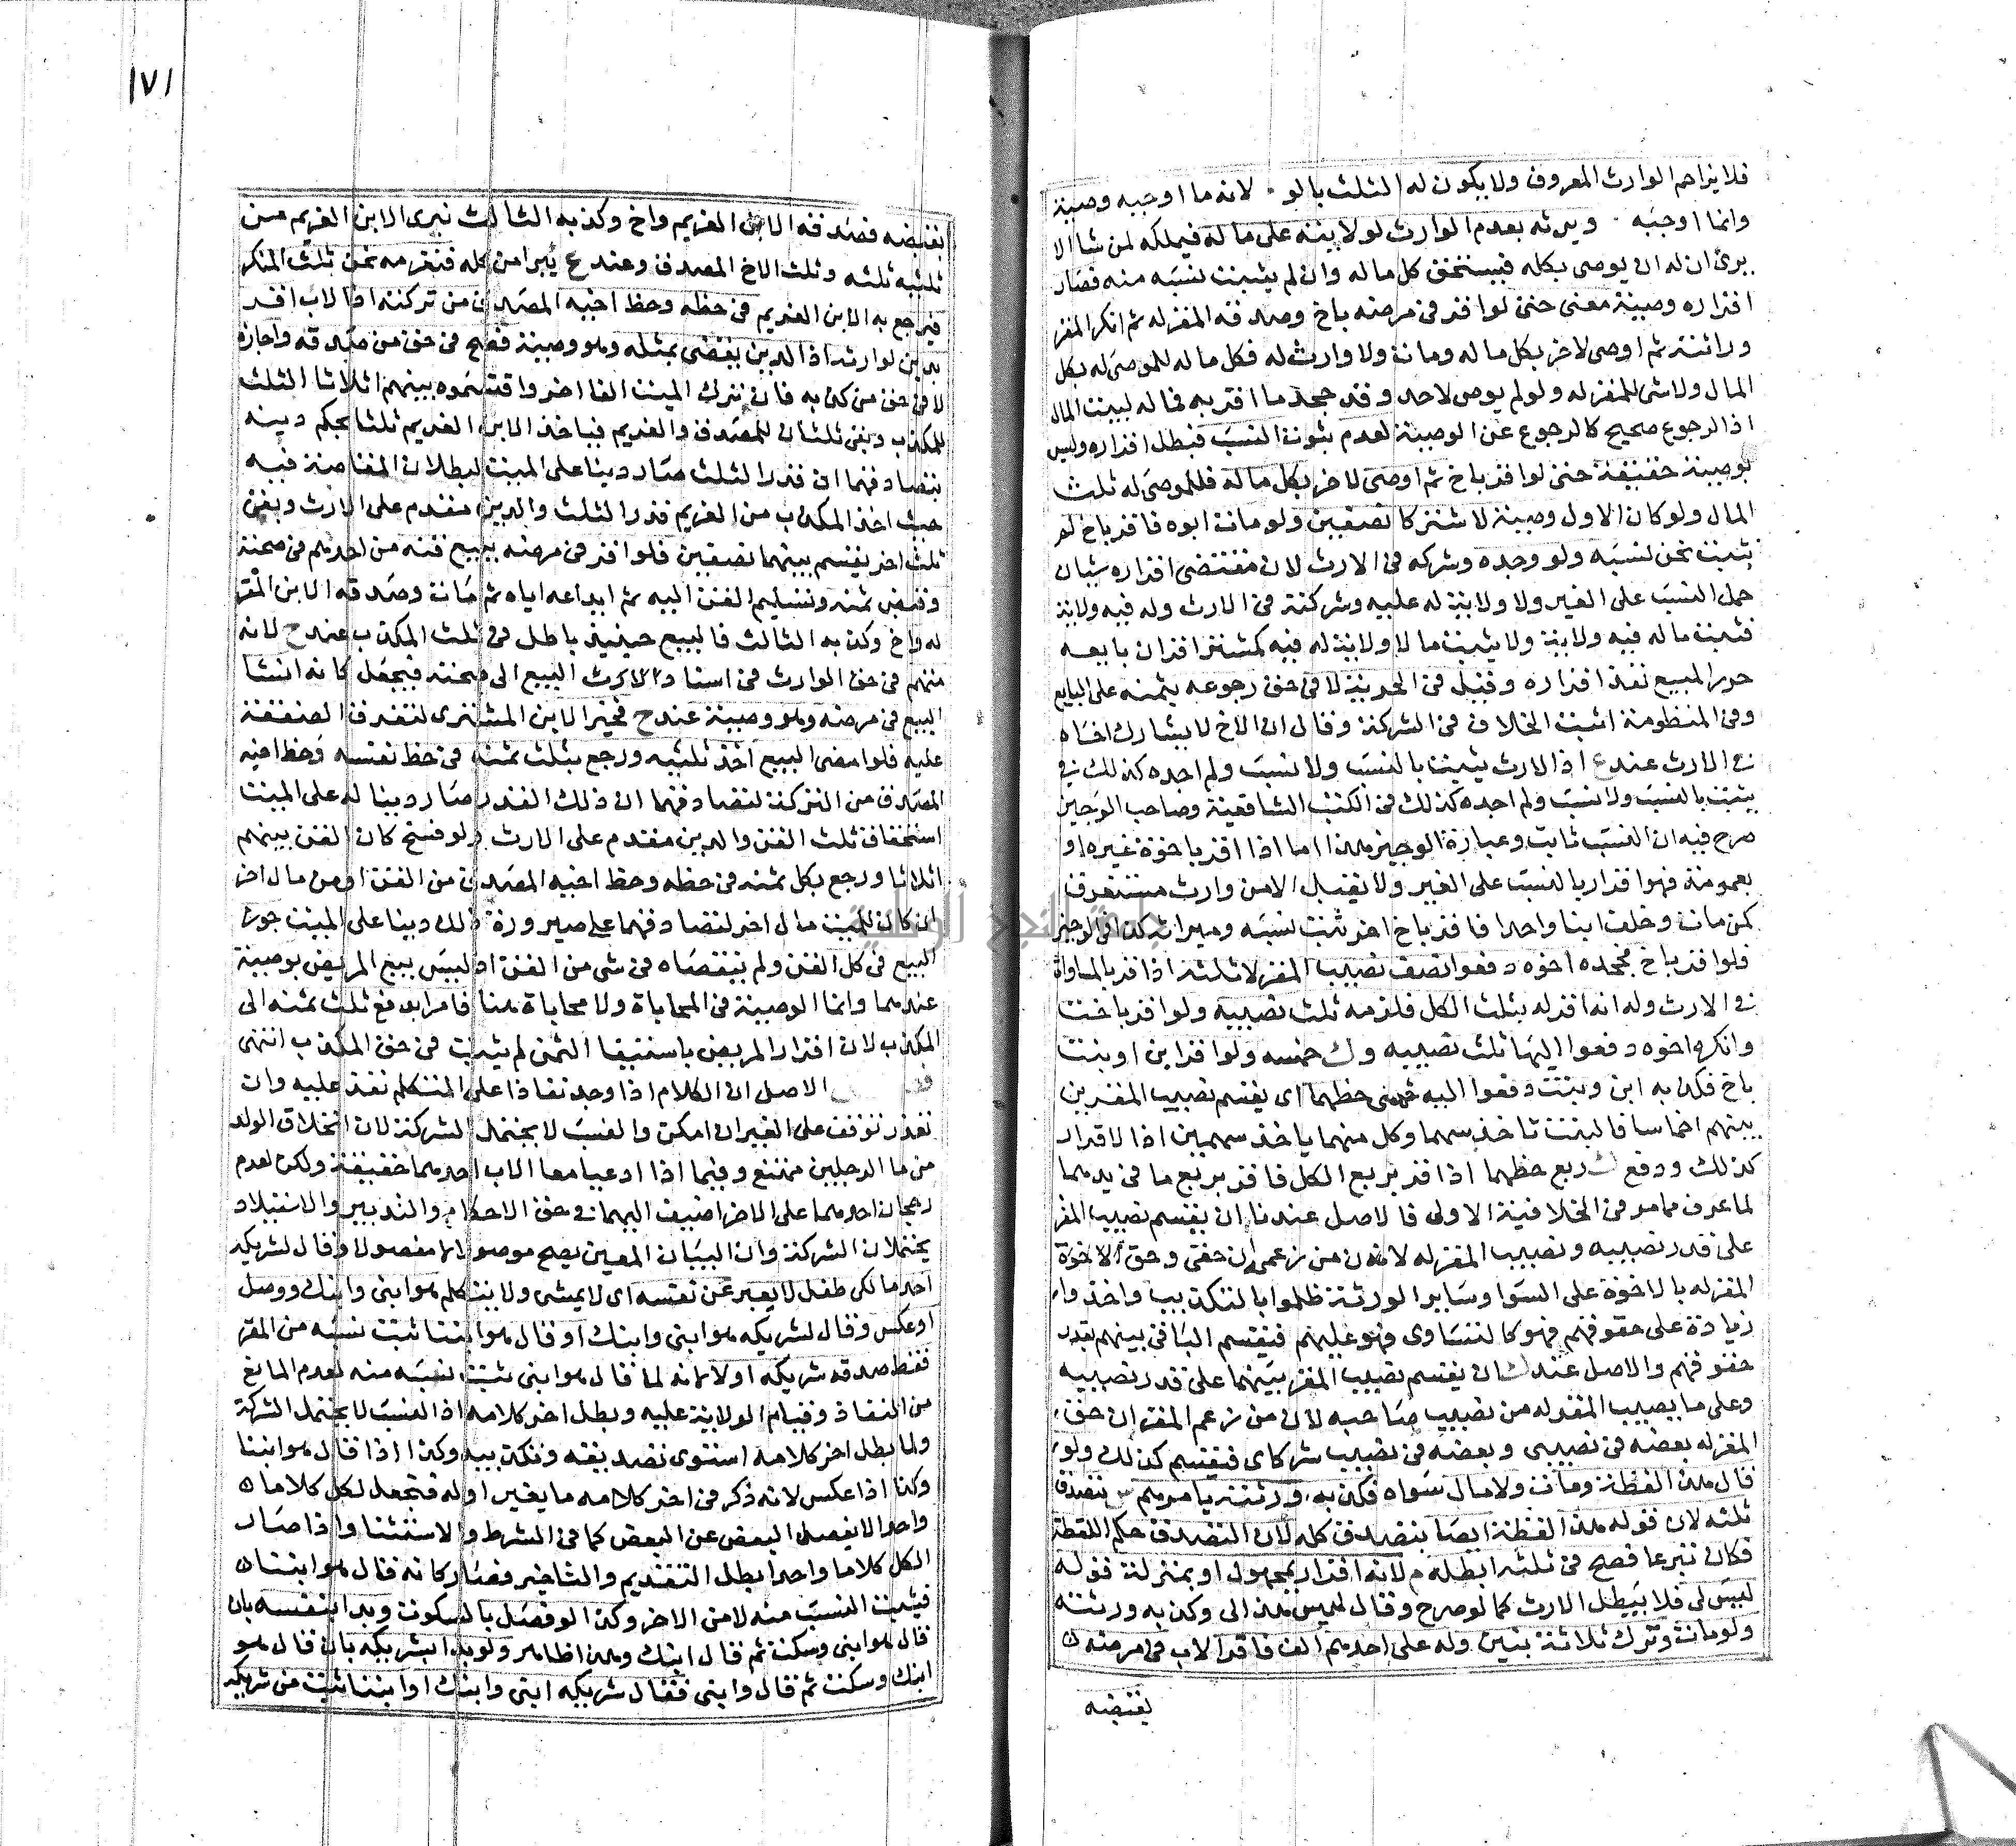 فلا يزاحم الوارث المعروف ولا يكون له الثلث بالو لانه ما اوجبه وصية
وانما اوجبه ويرثه بعدم الوارث لولايته على ماله فيملكه لمن شا الا
يرى ان له ان يوصى بكله فيستحق كل ماله وان لم يثبت نسبه منه فصار
اقراره وصية معنى حتى لو اقر فى مرضه باخ وصدقه المقر له ثم انكر المقر
وراثته ثم اوصى لاخر بكل ماله ومات ولا وارث له فكل ماله للموصى له بكل
المال ولا شى للمقر له ولو لم يوص لاحد وقد جحد ما اقر به فماله لبيت المال
اذ الرجوع صحيح كالرجوع عن الوصية لعدم ثبوت النسب فبطل اقراره وليس
بوصية حقيقة حتى لو اقر باخ ثم اوصى لاخر بكل ماله فللموصى له ثلث
المال ولو كان الاول وصية لاشتركا نصفين ولو مات ابوه فاقر باخ لم
يثبت نحن نسبه ولو وحده وشركه فى الارث لان مقتضى اقراره شيان
حمل النسب على الغير ولا ولاية له عليه وشركته فى الارث وله فيه ولاية
فثبت ماله فيه ولاية ولا يثبت ما لا ولاية له فيه كمشتر اقر ان بايعه
حرر المبيع نفذ اقراره وقبل فى الحرية لا فى حق رجوعه بثمنه على البايع
وفى المنظومة اثبت الخلاف فى الشركة وقال ان الاخ لا يشارك اخاه
فى الارث عند ع اذ الارث يثبت بالنسب ولا نسب ولم اجده كذلك فى
يثبت بالنسب ولا نسب ولم اجده كذلك فى الكتب الشافعية وصاحب الوجيز
صرح فيه ان النسب ثابت وعبارة الوجيز هذا اما اذا اقر باخوة غيره او
بعمومة فهو اقرار بالنسب على الغير ولا يقبل الا من وارث مستغرق
كمن مات وخلف ابنا واحدا فاقر باخ اخر ثبت نسبه وميراثه كذا فى الوجيز
فلو اقر باخ فجحده اخوه دفعوا نصف نصيب المقر لا ثلثه اذ اقر بالمساواة
فى الارث وله انه اقر له بثلث الكل فلزمه ثلث نصيبه ولو اقر باخت
وانكره اخوه دفعوا اليها ثلث نصيبه وك خمسه ولو اقر ابن او بنت
باخ فكذبه ابن وبنت دفعوا اليه خمسى حظهما اى يقسم نصيب المقرين
بينهم اخماسا فالبنت تاخذ سهما وكل منهما ياخذ سهمين اذ الاقرار
كذلك ودفع ك ربع حظهما اذ اقر بربع الكل فاقر بربع ما فى يدهما
لما عرف مما مر فى الخلافية الاولى فالاصل عندنا ان يقسم نصيب المقر
على قدر نصيبه ونصيب المقر له لانه من زعمى ان حقى وحق الاخوة
المقر له بالاخوة على السوا وساير الورثة ظلموا بالتكذيب واخذوا
زيادة على حقوقهم فهو كالتساوى فهو عليهم فيقسم الباقى بينهم بقدر
حقوقهم والاصل عند ك ان يقسم نصيب المقر بينهما على قدر نصيبه
وعلى ما يصيب المقر له من نصيب صاحبه لان من زعم المقر ان حق
المقر له بعضه فى نصيبى وبعضه فى نصيب شركاى فيقسم كذلك ولو
قال هذه لقطة ومات ولا مال سواه فكذبه ورثته يامرهم س بتصدق
ثلثه لان قوله هذه لقطة ايصا بتصدق كله لان التصدق حكم اللقطة
فكان تبرعا فصح فى ثلثه ابطله م لانه اقرار بمجهول او بمنزلة قوله
ليس لى فلا يبطل الارث كما لو صرح وقال ليس هذا لى وكذبه ورثته
ولو مات وترك ثلاثة بنين وله على احدهم الف فاقر الاب فى مرضه
بقبضه
١٧١
بقبضه فصدقه الابن الغريم واخ وكذبه الثالث نبرى الابن الغريم من
ثلثيه ثلثه وثلث الاخ المصدق وعند ع يبرا من كله فنغرمه نحن ثلث المنكر
فيرجع به الابن الغريم فى حظه وحظ اخيه المصدق من تركته اذ الاب اقر
بدين لوارثه اذ الدين يقضى بمثله وهو وصية فصح فى حق من صدقه واجازه
لا فى حق من كذبه فان ترك الميت الفا اخر واقتسموه بينهم اثلاثا الثلث
للمكذب وبقى ثلثان للمصدق والغريم فياخذ الابن الغريم ثلثا بحكم دينه
بتصادقهما ان قدر الثلث صار دينا على الميت لبطلان المقاصة فيه
حيث اخذ المكذب من الغريم قدر الثلث والدين مقدم على الارث وبقى
ثلث اخر يقسم بينهما نصفين فلو اقر فى مرضه ببيع قنه من احدهم فى صحته
وقبض ثمنه وتسليم القن اليه ثم ايداعه اياه ثم مات وصدقه الابن المقر
له واخ وكذبه الثالث فالبيع حينيذ باطل فى ثلث المكذب عند ح لانه
متهم فى حق الوارث فى اسناد الارث البيع الى صحته فيجعل كانه انشا
البيع فى مرضه وهو وصية عند ح فخير الابن المشترى لتفرق الصفقة
عليه فلو امضى البيع اخذ ثلثيه ورجع بثلث ثمنه فى حظ نفسه وحظ اخيه
المصدق من التركة لتصادقهما ان ذلك القدر صار دينا له على الميت
استحقاق ثلث القن والدين مقدم على الارث ولو فسخ كان القن بينهم
اثلاثا ورجع بكل ثمنه فى حظه وحظ اخيه المصدق من القن او من مال اخر
ان كان للميت مال اخر لتصادقهما على صيرورة ذلك دينا على الميت جوزا
البيع فى كل القن ولم ينقضاه فى شى من القن اذ ليس بيع المريض بوصية
عندهما وانما الوصية فى المحاباة ولا محاباة هنا فامرا بدفع ثلث ثمنه الى
المكذب لان اقرار المريض باستيفا الثمن لم يثبت فى حق المكذب انتهى
الاصل ان الكلام اذا وجد نفاذا على المتكلم نفذ عليه وان
تعذر توقف على الغير ان امكن والنسب لا يحتمل الشركة لان انخلاق الولد
من ما الرجلين ممتنع وفيما اذا ادعيا معا الاب احدهما حقيقة ولكن لعدم
رجحان احدهما على الاخر اضيف اليهما فى حق الاحكام والتدبير والاستيلاد
يحتملان الشركة وان البيان المعين يصح موصولا لا مفصولا وقال لشريكه
احد مالكى طفل لا يعبر عن نفسه اى لا يمشى ولا يتكلم هو ابنى وابنك ووصل
او عكس وقال لشريكه هو ابنى وابنك او قال هو ابننا ثبت نسبه من المقر
فقط صدقه شريكه او لا لانه لما قال هو ابنى ثبت نسبه منه لعدم المانع
من النفاذ وقيام الولاية عليه وبطل اخر كلامه اذ النسب لا يحتمل الشركة
ولما بطل اخر كلامه استوى تصديقه وتكذيبه وكذا اذا قال هو ابننا
وكذا اذا عكس لانه ذكر فى اخر كلامه ما يغير اوله فتجعل لكل كلاما
واحدا لا يفصل البعض عن البعض كما فى الشرط والاستثنا واذا صار
الكل كلاما واحدا بطل التقديم والتاخير فصار كانه قال هو ابننا
فيثبت النسب منه لا من الاخر وكذا لو فصل بالسكوت وبدا بنفسه بان
قال هو ابنى وسكت ثم قال ابنك وهذا ظاهر ولو بدا بشريكه بان قال هو
ابنك وسكت ثم قال وابنى فقال شريكه ابنى وابنك او ابننا ثبت من شريكه
جامعة النجاح الوطنية